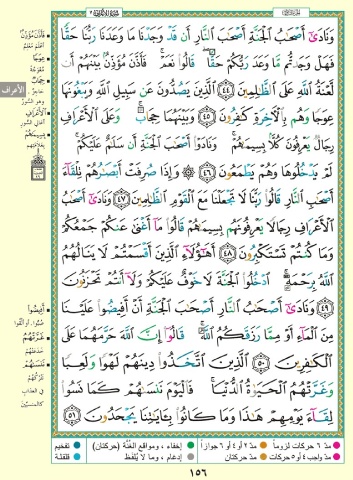 وَنَادَىٰٓ أَصْحَٰبُ ٱلْجَنَّةِ أَصْحَٰبَ ٱلنَّارِ أَن قَدْ وَجَدْنَا مَا وَعَدَنَا رَبُّنَا حَقًّا
فَهَلْ وَجَدتُّم مَّا وَعَدَ رَبُّكُمْ حَقًّا ۖ قَالُوا۟ نَعَمْ ۚ فَأَذَّنَ مُؤَذِّنٌۢ بَيْنَهُمْ أَن
لَّعْنَةُ ٱللَّهِ عَلَى ٱلظَّٰلِمِينَ ٤٤ ٱلَّذِينَ يَصُدُّونَ عَن سَبِيلِ ٱللَّهِ وَيَبْغُونَهَا
عِوَجًا وَهُم بِٱلْءَاخِرَةِ كَٰفِرُونَ ٤٥ وَبَيْنَهُمَا حِجَابٌ ۚ وَعَلَى ٱلْأَعْرَافِ
رِجَالٌ يَعْرِفُونَ كُلًّۢا بِسِيمَىٰهُمْ ۚ وَنَادَوْا۟ أَصْحَٰبَ ٱلْجَنَّةِ أَن سَلَٰمٌ عَلَيْكُمْ ۚ
لَمْ يَدْخُلُوهَا وَهُمْ يَطْمَعُونَ ٤٦ ۞ وَإِذَا صُرِفَتْ أَبْصَٰرُهُمْ تِلْقَآءَ
أَصْحَٰبِ ٱلنَّارِ قَالُوا۟ رَبَّنَا لَا تَجْعَلْنَا مَعَ ٱلْقَوْمِ ٱلظَّٰلِمِينَ ٤٧ وَنَادَىٰٓ أَصْحَٰبُ
ٱلْأَعْرَافِ رِجَالًا يَعْرِفُونَهُم بِسِيمَىٰهُمْ قَالُوا۟ مَآ أَغْنَىٰ عَنكُمْ جَمْعُكُمْ
وَمَا كُنتُمْ تَسْتَكْبِرُونَ ٤٨ أَهَٰٓؤُلَآءِ ٱلَّذِينَ أَقْسَمْتُمْ لَا يَنَالُهُمُ
ٱللَّهُ بِرَحْمَةٍ ۚ ٱدْخُلُوا۟ ٱلْجَنَّةَ لَا خَوْفٌ عَلَيْكُمْ وَلَآ أَنتُمْ تَحْزَنُونَ
٤٩ وَنَادَىٰٓ أَصْحَٰبُ ٱلنَّارِ أَصْحَٰبَ ٱلْجَنَّةِ أَنْ أَفِيضُوا۟ عَلَيْنَا
مِنَ ٱلْمَآءِ أَوْ مِمَّا رَزَقَكُمُ ٱللَّهُ ۚ قَالُوٓا۟ إِنَّ ٱللَّهَ حَرَّمَهُمَا عَلَى
ٱلْكَٰفِرِينَ ٥٠ ٱلَّذِينَ ٱتَّخَذُوا۟ دِينَهُمْ لَهْوًا وَلَعِبًا
وَغَرَّتْهُمُ ٱلْحَيَوٰةُ ٱلدُّنْيَا ۚ فَٱلْيَوْمَ نَنسَىٰهُمْ كَمَا نَسُوا۟
لِقَآءَ يَوْمِهِمْ هَٰذَا وَمَا كَانُوا۟ بِـَٔايَٰتِنَا يَجْحَدُونَ ٥١
الأعراف
فَأَذَّنَ مُؤَذِّنٌ
عِوَجًا
حِجَابٌ
بِسِيمَاهُمْ
أَفِيضُوا
غَرَّتْهُمْ
نَنْسَاهُمْ
مدّ ٦ حركات لزوماً
مدّ ٢ أو ٤ أو ٦ جوازاً
إخفاء، ومواقع الغُنَّة (حركتان)
تفخيم
مدّ واجب ٤ أو ٥ حركات
مدّ حركتان
إدغام، وما لا يُلفظ
قلقلة
١٥٦